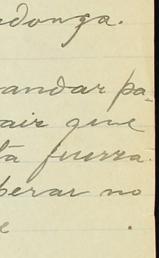 donga.
andar pa-
air que
ta fuerza
perar no
e